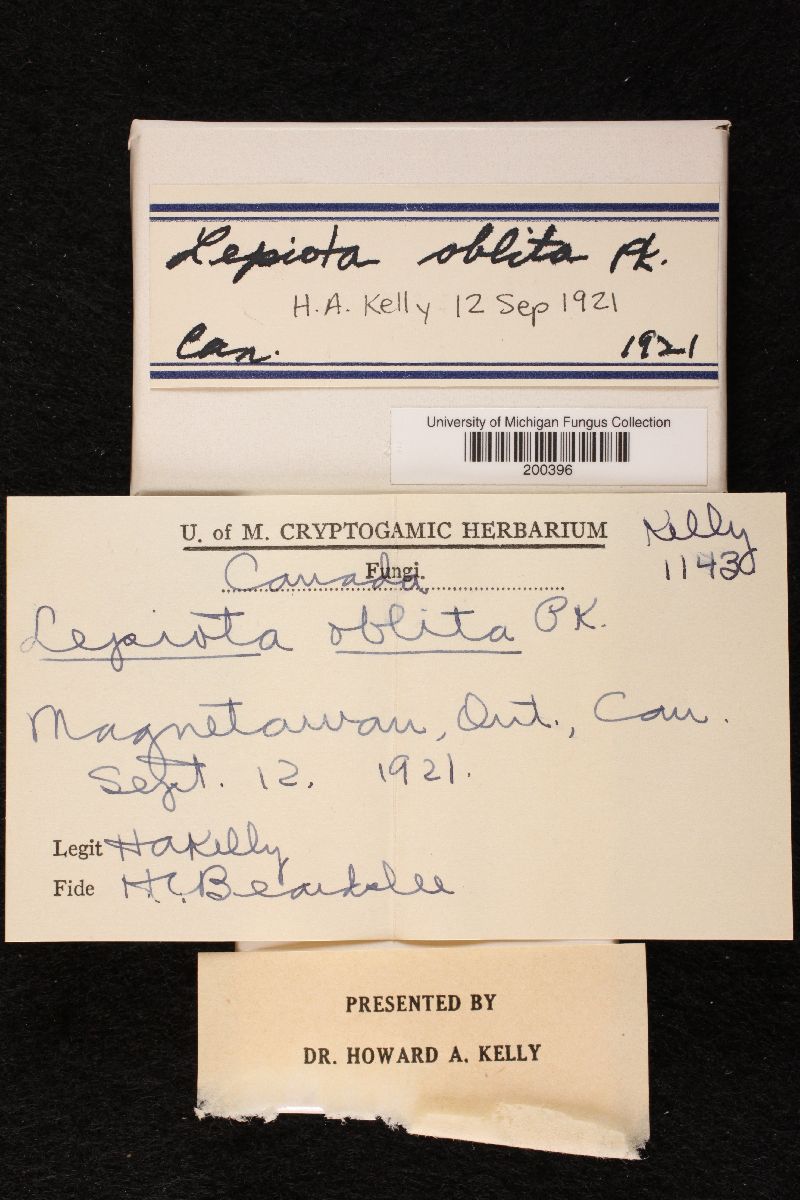 Lepiota oblita Pk.
H.A. Kelly 12 Sep 1921
Can. 1921
University of Michigan Fungus Collection
200396
U. of M. CRYPTOGAMIC HERBARIUM
Kelly
1143
Fungi.
Canada
Lepiota oblita PK.
Magnetawan, Ont., Can.
Sept. 12. 1921.
Legit HAKelly
Fide H.C. Beardslee
PRESENTED BY
DR. HOWARD A. KELLY